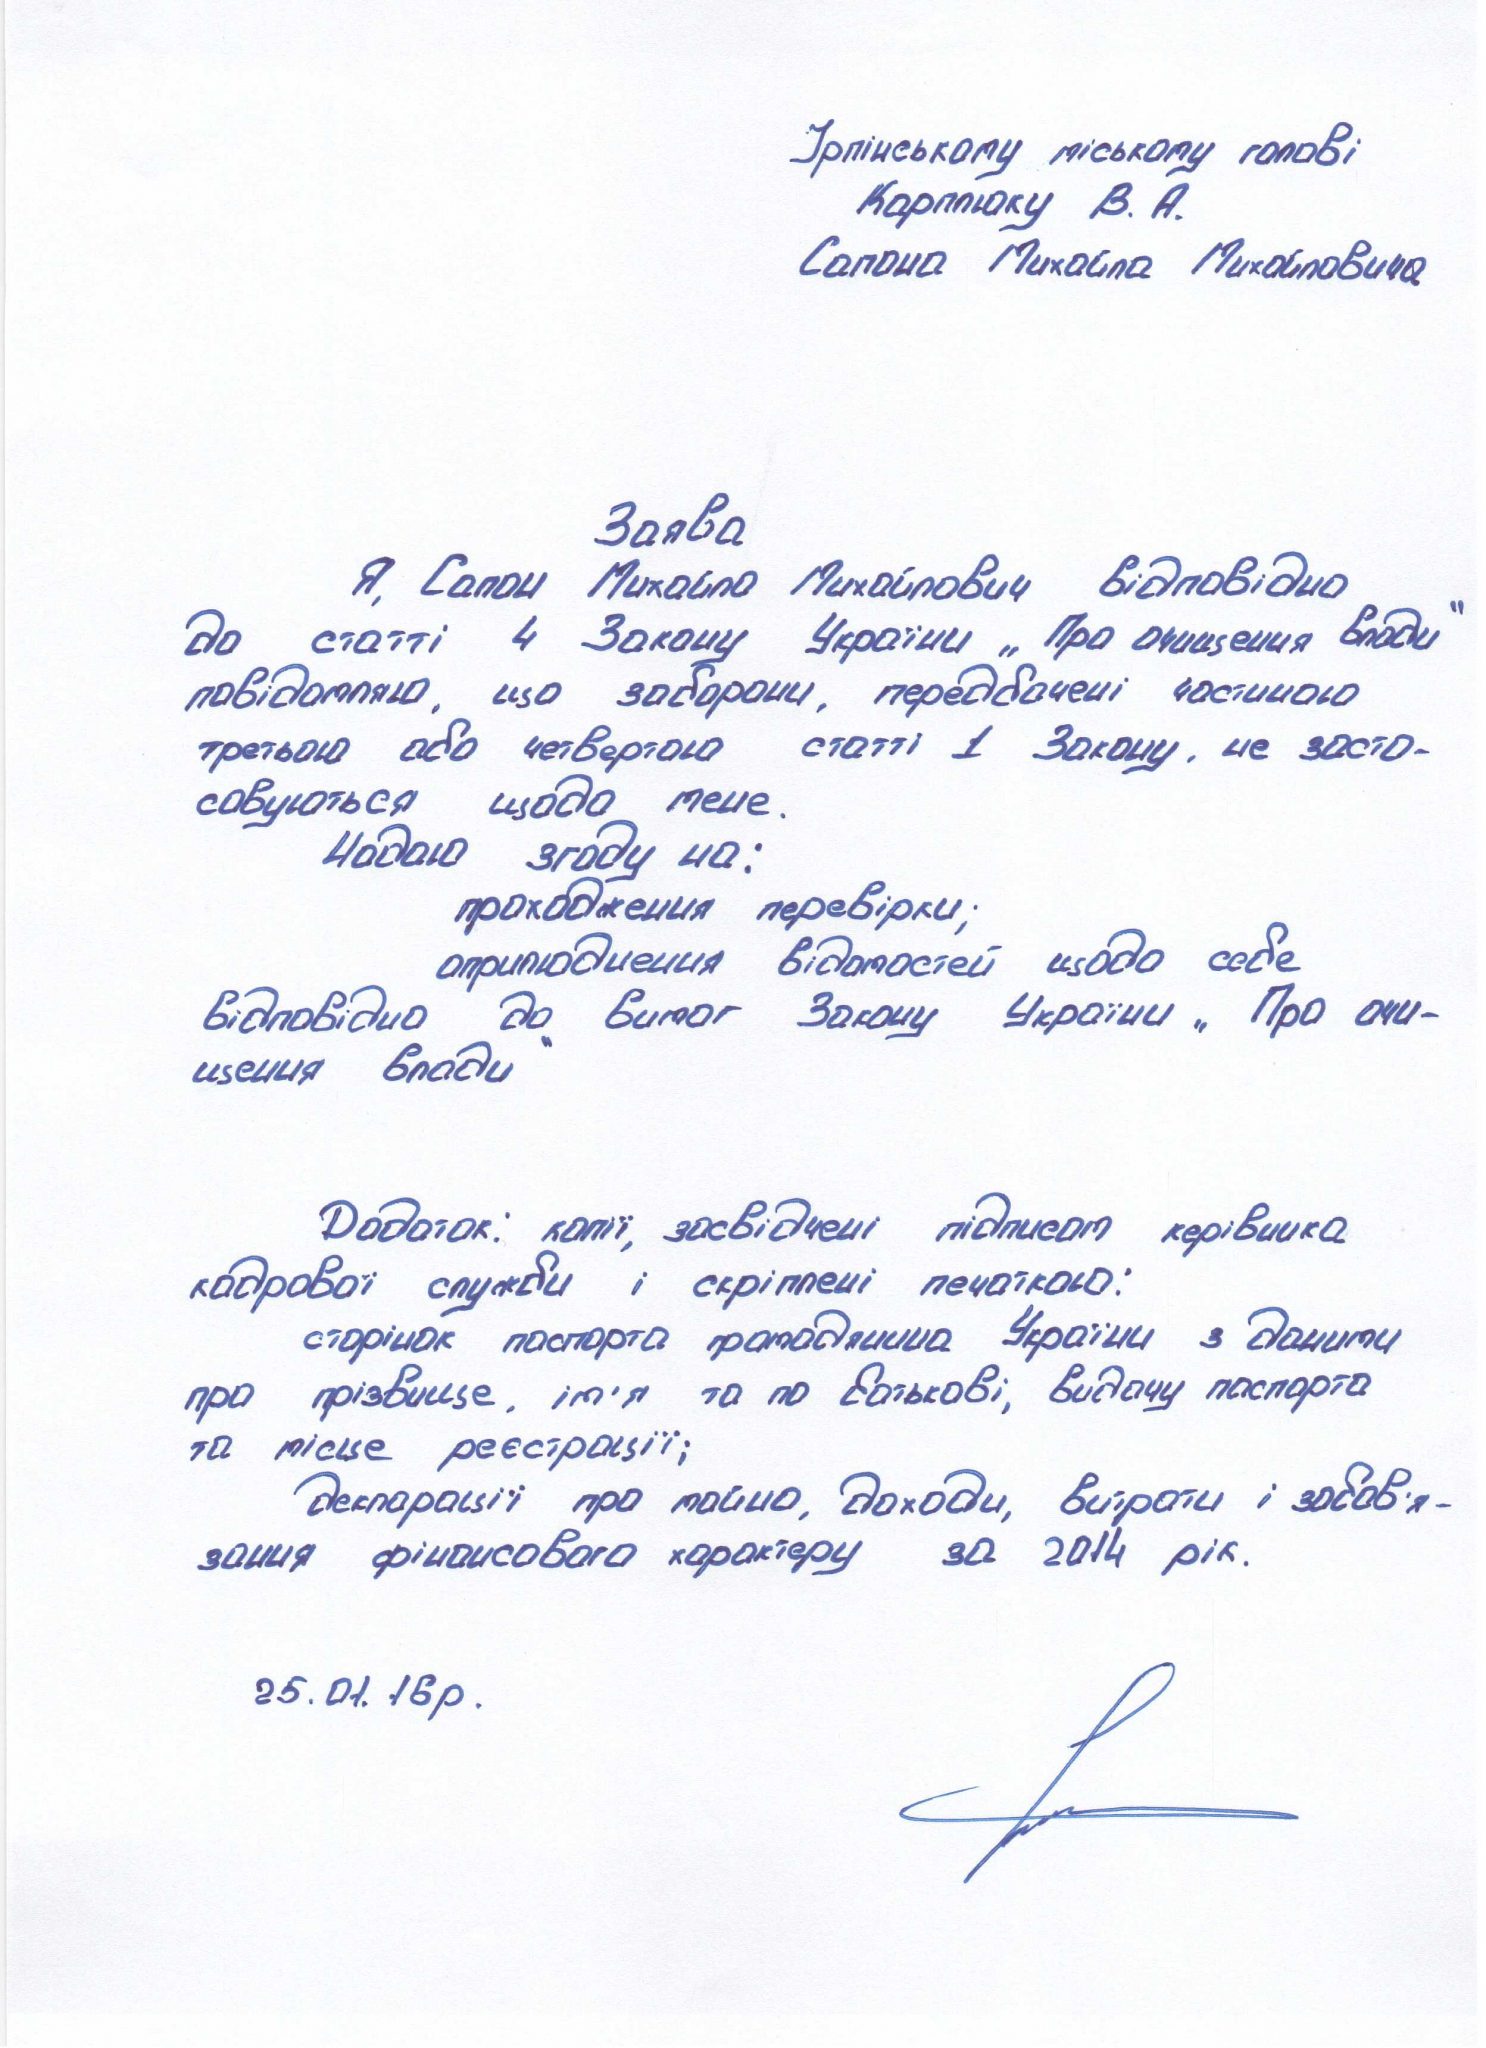 Ірпінському міському голові
Карплюку В. А.
Сапона Михайла Михайловича
Заява
Я, Сапон Михайло Михайлович відповідно
до статті 4 Закону України „Про очищення влади“
повідомляю, що заборони, передбачені частиною
третьою або четвертою статті 1 Закону, не засто-
совуються щодо мене.
Надаю згоду на:
проходження перевірки;
оприлюднення відомостей щодо себе
відповідно до вимог Закону України „Про очи-
щення влади“
Додаток: копії, засвідчені підписом керівника
кадрової служби і скріплені печаткою:
сторінок паспорта громадянина України з даними
про прізвище, ім'я та по батькові, видачу паспорта
та місце реєстрації;
декларації про майно, доходи, витрати і зобов'я-
зання фінансового характеру за 2014 рік.
25.01.16р.